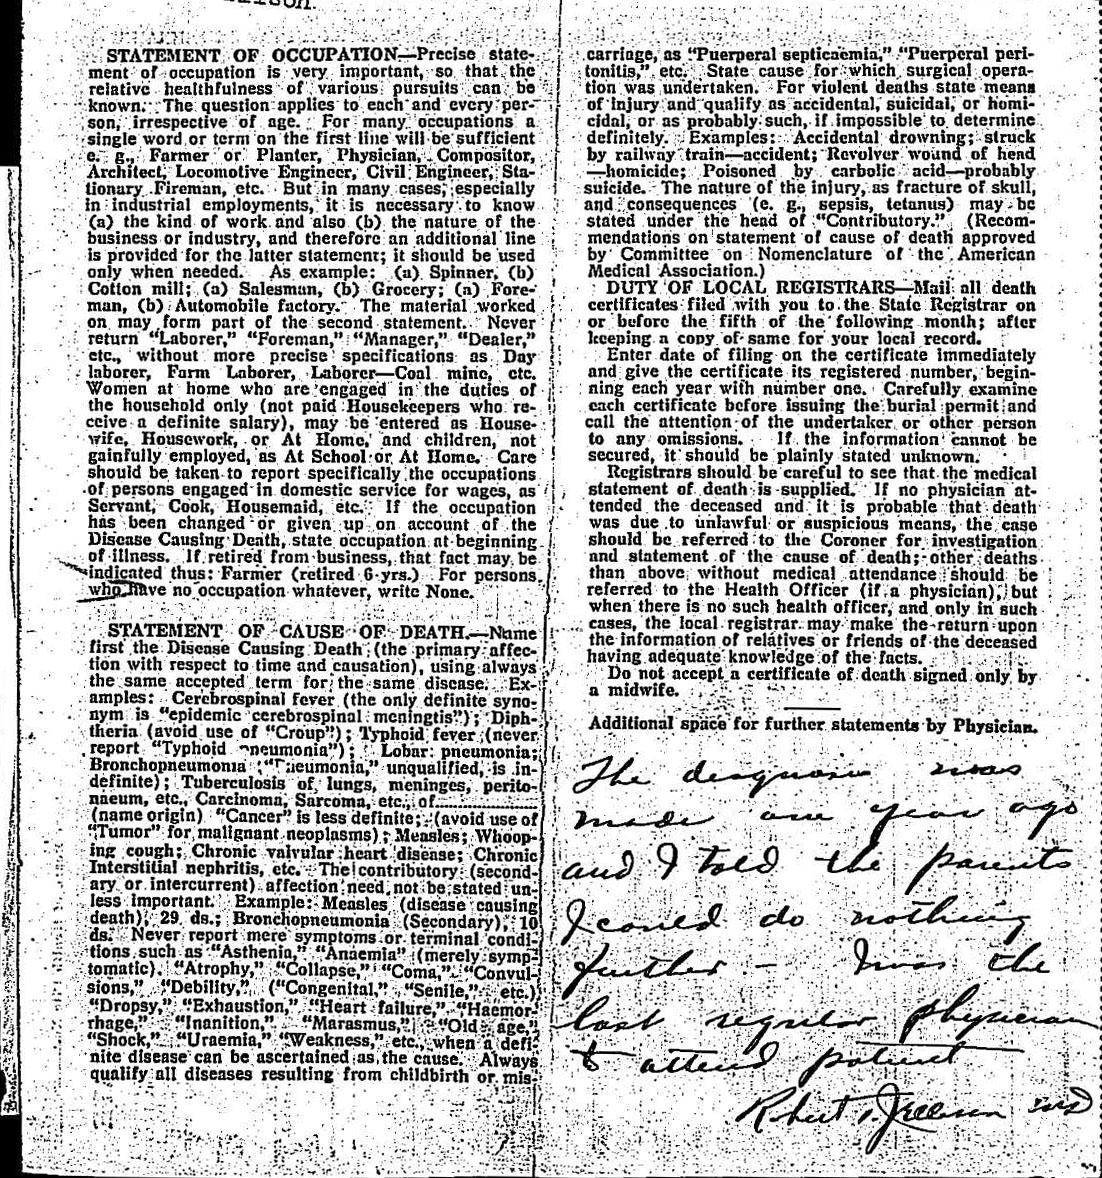 STATEMENT OF OCCUPATION—Precise state-
ment of occupation is very important, so that the
relative healthfulness of various pursuits can be
known. The question applies to each and every per-
son, irrespective of age. For many occupations a
single word or term on the first line will be sufficient
e. g., Farmer or Planter, Physician, Compositor,
Architect, Locomotive Engineer, Civil Engineer, Sta-
tionary Fireman, etc. But in many cases, especially
in industrial employments, it is necessary to know
(a) the kind of work and also (b) the nature of the
business or industry, and therefore an additional line
is provided for the latter statement; it should be used
only when needed. As example: (a) Spinner, (b)
Cotton mill; (a) Salesman, (b) Grocery; (a) Fore-
man, (b) Automobile factory. The material worked
on may form part of the second statement. Never
return "Laborer," "Foreman," "Manager," "Dealer,"
etc., without more precise specifications as Day
laborer, Farm Laborer, Laborer—Coal mine, etc.
Women at home who are engaged in the duties of
the household only (not paid Housekeepers who re-
ceive a definite salary), may be entered as House-
wife, Housework, or At Home, and children, not
gainfully employed, as At School or At Home. Care
should be taken to report specifically the occupations
of persons engaged in domestic service for wages, as
Servant, Cook, Housemaid, etc. If the occupation
has been changed or given up on account of the
Disease Causing Death, state occupation at beginning
of illness. If retired from business, that fact may be
indicated thus: Farmer (retired 6 yrs.) For persons
who have no occupation whatever, write None.
STATEMENT OF CAUSE OF DEATH.—Name
first the Disease Causing Death (the primary affec-
tion with respect to time and causation), using always
the same accepted term for the same disease. Ex-
amples: Cerebrospinal fever (the only definite syno-
nym is "epidemic cerebrospinal meningtis"); Diph-
theria (avoid use of "Croup"); Typhoid fever (never
report "Typhoid pneumonia"); Lobar pneumonia;
Bronchopneumonia ("Pneumonia," unqualified, is in-
definite); Tuberculosis of lungs, meninges, perito-
naeum, etc., Carcinoma, Sarcoma, etc., of
(name origin) "Cancer" is less definite; (avoid use of
"Tumor" for malignant neoplasms); Measles; Whoop-
ing cough; Chronic valvular heart disease; Chronic
Interstitial nephritis, etc. The contributory (second-
ary or intercurrent) affection need not be stated un-
less important. Example: Measles (disease causing
death), 29 ds.; Bronchopneumonia (Secondary), 10
ds. Never report mere symptoms or terminal condi-
tions such as "Asthenia," "Anaemia" (merely symp-
tomatic). "Atrophy," "Collapse," "Coma," "Convul-
sions," "Debility," ("Congenital," "Senile," etc.)
"Dropsy," "Exhaustion," "Heart failure," "Haemor-
rhage," "Inanition," "Marasmus," "Old age,"
"Shock," "Uraemia," "Weakness," etc., when a defi-
nite disease can be ascertained as the cause. Always
qualify all diseases resulting from childbirth or mis-
carriage, as "Puerperal septicaemia," "Puerperal peri-
tonitis," etc. State cause for which surgical opera-
tion was undertaken. For violent deaths state means
of injury and qualify as accidental, suicidal, or homi-
cidal, or as probably such, if impossible to determine
definitely. Examples: Accidental drowning; struck
by railway train—accident; Revolver wound of head
—homicide; Poisoned by carbolic acid—probably
suicide. The nature of the injury, as fracture of skull,
and consequences (e. g., sepsis, tetanus) may be
stated under the head of "Contributory." (Recom-
mendations on statement of cause of death approved
by Committee on Nomenclature of the American
Medical Association.)
DUTY OF LOCAL REGISTRARS—Mail all death
certificates filed with you to the State Registrar on
or before the fifth of the following month; after
keeping a copy of same for your local record.
Enter date of filing on the certificate immediately
and give the certificate its registered number, begin-
ning each year with number one. Carefully examine
each certificate before issuing the burial permit and
call the attention of the undertaker or other person
to any omissions. If the information cannot be
secured, it should be plainly stated unknown.
Registrars should be careful to see that the medical
statement of death is supplied. If no physician at-
tended the deceased and it is probable that death
was due to unlawful or suspicious means, the case
should be referred to the Coroner for investigation
and statement of the cause of death; other deaths
than above without medical attendance should be
referred to the Health Officer (if a physician), but
when there is no such health officer, and only in such
cases, the local registrar may make the return upon
the information of relatives or friends of the deceased
having adequate knowledge of the facts.
Do not accept a certificate of death signed only by
a midwife.
Additional space for further statements by Physician.
The diagnosis was
made one year ago
and I told the parents
I could do nothing
further — I was the
last regular physician
to attend patient
Robert MD